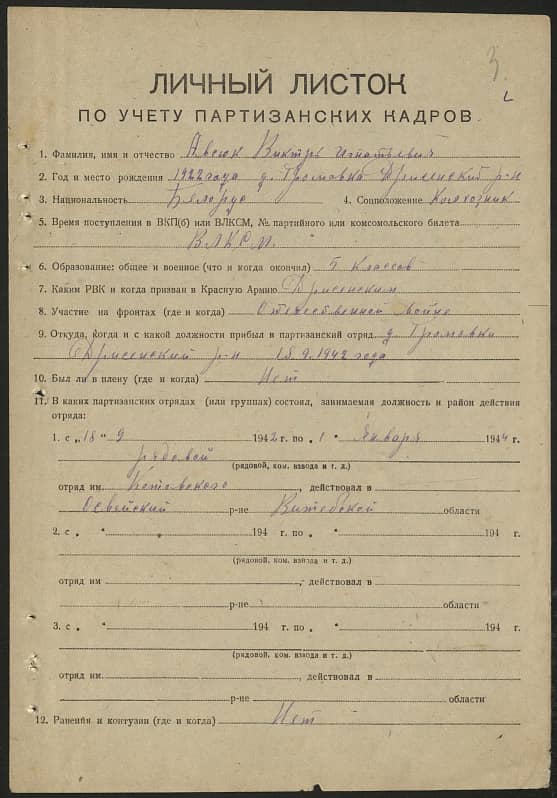 3.
ЛИЧНЫЙ ЛИСТОК
ПО УЧЕТУ ПАРТИЗАНСКИХ КАДРОВ
1. Фамилия, имя и отчество Авсюк Виктор Игнатьевич
2. Год и место рождения 1922 года д. Громовка Дрисенский р-н
3. Национальность Беларус 4. Соцположение Колхозник
5. Время поступления в ВКП(б) или ВЛКСМ, № партийного или комсомольского билета
ВЛКСМ
6. Образование: общее и военное (что и когда окончил) 5 классов
7. Каким РВК и когда призван в Красную Армию Дрисенским
8. Участие на фронтах (где и когда) Отечественной войне
9. Откуда, когда и с какой должности прибыл в партизанский отряд д. Громовки
Дрисенский р-н 18 9 1942 года
10. Был ли в плену (где и когда) Нет
11. В каких партизанских отрядах (или группах) состоял, занимаемая должность и район действия
отряда:
1. с „18 " 9 1942 г. по „1 " Января 1944 г.
рядовой
(рядовой, ком. взвода и т. д.)
отряд им , действовал в
Освейский р-не Витебской области
2. с „ " 194 г. по „ " 194 г.
(рядовой, ком. взвода и т. д.)
отряд им , действовал в
р-не области
3. с „ " 194 г. по „ " 194 г.
(рядовой, ком. взвода и т. д.)
отряд им. , действовал в
р-не области
12. Ранения и контузии (где и когда) Нет